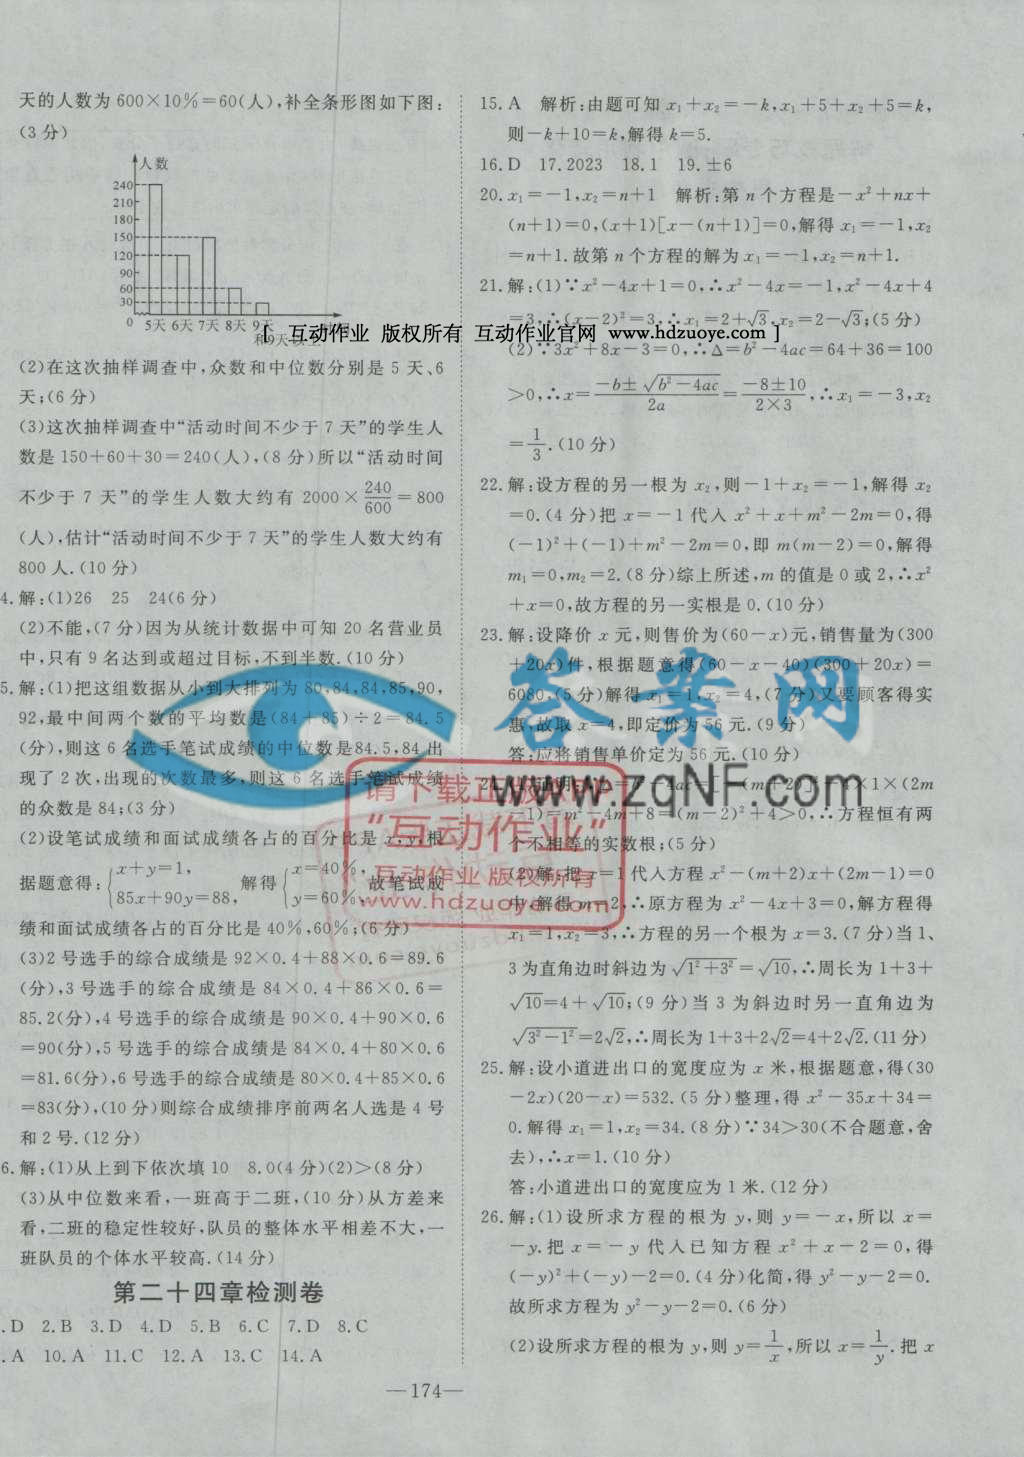 天的人数为600×10%=60(人),补全条形图如下图:
(3分)
人数
240
210
180
150
120
90
60
30
0 5天 6天 7天 8天 9天
[ 互动作业 版权所有 互动作业官网 www.hdzuoye.com ]
(2)在这次抽样调查中,众数和中位数分别是5天、6
天;(6分)
(3)这次抽样调查中“活动时间不少于7天”的学生人
数是150+60+30=240(人),(8分)所以“活动时间
不少于7天”的学生人数大约有2000×240/600=800
(人),估计“活动时间不少于7天”的学生人数大约有
800人.(10分)
4.解:(1)26 25 24(6分)
(2)不能,(7分)因为从统计数据中可知20名营业员
中,只有9名达到或超过目标,不到半数.(10分)
5.解:(1)把这组数据从小到大排列为80,84,84,85,90,
92,最中间两个数的平均数是(84+85)÷2=84.5
(分),则这6名选手笔试成绩的中位数是84.5,84出
现了2次,出现的次数最多,则这6名选手笔试成绩
的众数是84;(3分)
(2)设笔试成绩和面试成绩各占的百分比是x,y,根
据题意得:{x+y=1, 85x+90y=88, 解得{x=40%, y=60%, 故笔试成
绩和面试成绩各占的百分比是40%,60%;(6分)
(3)2号选手的综合成绩是92×0.4+88×0.6=89.6
(分),3号选手的综合成绩是84×0.4+86×0.6=
85.2(分),4号选手的综合成绩是90×0.4+90×0.6
=90(分),5号选手的综合成绩是84×0.4+80×0.6
=81.6(分),6号选手的综合成绩是80×0.4+85×0.6
=83(分),(10分)则综合成绩排序前两名人选是4号
和2号.(12分)
6.解:(1)从上到下依次填10 8.0(4分)(2)>(8分)
(3)从中位数来看,一班高于二班,(10分)从方差来
看,二班的稳定性较好,队员的整体水平相差不大,一
班队员的个体水平较高.(14分)
第二十四章检测卷
.D 2.B 3.D 4.D 5.B 6.C 7.D 8.C
.A 10.A 11.C 12.A 13.C 14.A
15.A 解析:由题可知x₁+x₂=-k,x₁+5+x₂+5=k,
则-k+10=k,解得k=5.
16.D 17.2023 18.1 19.±6
20.x₁=-1,x₂=n+1 解析:第n个方程是-x²+nx+
(n+1)=0,(x+1)[x-(n+1)]=0,解得x₁=-1,x₂
=n+1.故第n个方程的解为x₁=-1,x₂=n+1.
21.解:(1)∵x²-4x+1=0,∴x²-4x=-1,x²-4x+4
=3,∴(x-2)²=3,∴x₁=2+√3,x₂=2-√3;(5分)
(2)∵3x²+8x-3=0,∴Δ=b²-4ac=64+36=100
>0,∴x=(-b±√(b²-4ac))/2a=(-8±10)/(2×3),∴x₁=-3,x₂
=1/3.(10分)
22.解:设方程的另一根为x₂,则-1+x₂=-1,解得x₂
=0.(4分)把x=-1代入x²+x+m²-2m=0,得
(-1)²+(-1)+m²-2m=0,即m(m-2)=0,解得
m₁=0,m₂=2.(8分)综上所述,m的值是0或2,∴x²
+x=0,故方程的另一实根是0.(10分)
23.解:设降价x元,则售价为(60-x)元,销售量为(300
+20x)件,根据题意得(60-x-40)(300+20x)=
6080,(5分)解得x₁=1,x₂=4,(7分)又要顾客得实
惠,故取x=4,即定价为56元.(9分)
答:应将销售单价定为56元.(10分)
24.(1)证明:∵Δ=b²-4ac=[-(m+2)]²-4×1×(2m
-1)=m²-4m+8=(m-2)²+4>0,∴方程恒有两
个不相等的实数根;(5分)
(2)解:把x=1代入方程x²-(m+2)x+(2m-1)=0
中,解得m=2,∴原方程为x²-4x+3=0,解方程得
x₁=1,x₂=3,∴方程的另一个根为x=3.(7分)当1、
3为直角边时斜边为√(1²+3²)=√10,∴周长为1+3+
√10=4+√10;(9分)当3为斜边时另一直角边为
√(3²-1²)=2√2,∴周长为1+3+2√2=4+2√2.(11分)
25.解:设小道进出口的宽度应为x米,根据题意,得(30
-2x)(20-x)=532.(5分)整理,得x²-35x+34=
0.解得x₁=1,x₂=34.(8分)∵34>30(不合题意,舍
去),∴x=1.(10分)
答:小道进出口的宽度应为1米.(12分)
26.解:(1)设所求方程的根为y,则y=-x,所以x=
-y.把x=-y代入已知方程x²+x-2=0,得
(-y)²+(-y)-2=0.(4分)化简,得y²-y-2=0.
故所求方程为y²-y-2=0.(6分)
(2)设所求方程的根为y,则y=1/x,所以x=1/y.把x
—174—
答案网
www.zqNF.com
请下载正版APP
“互动作业”
互动作业 版权所有
www.hdzuoye.com